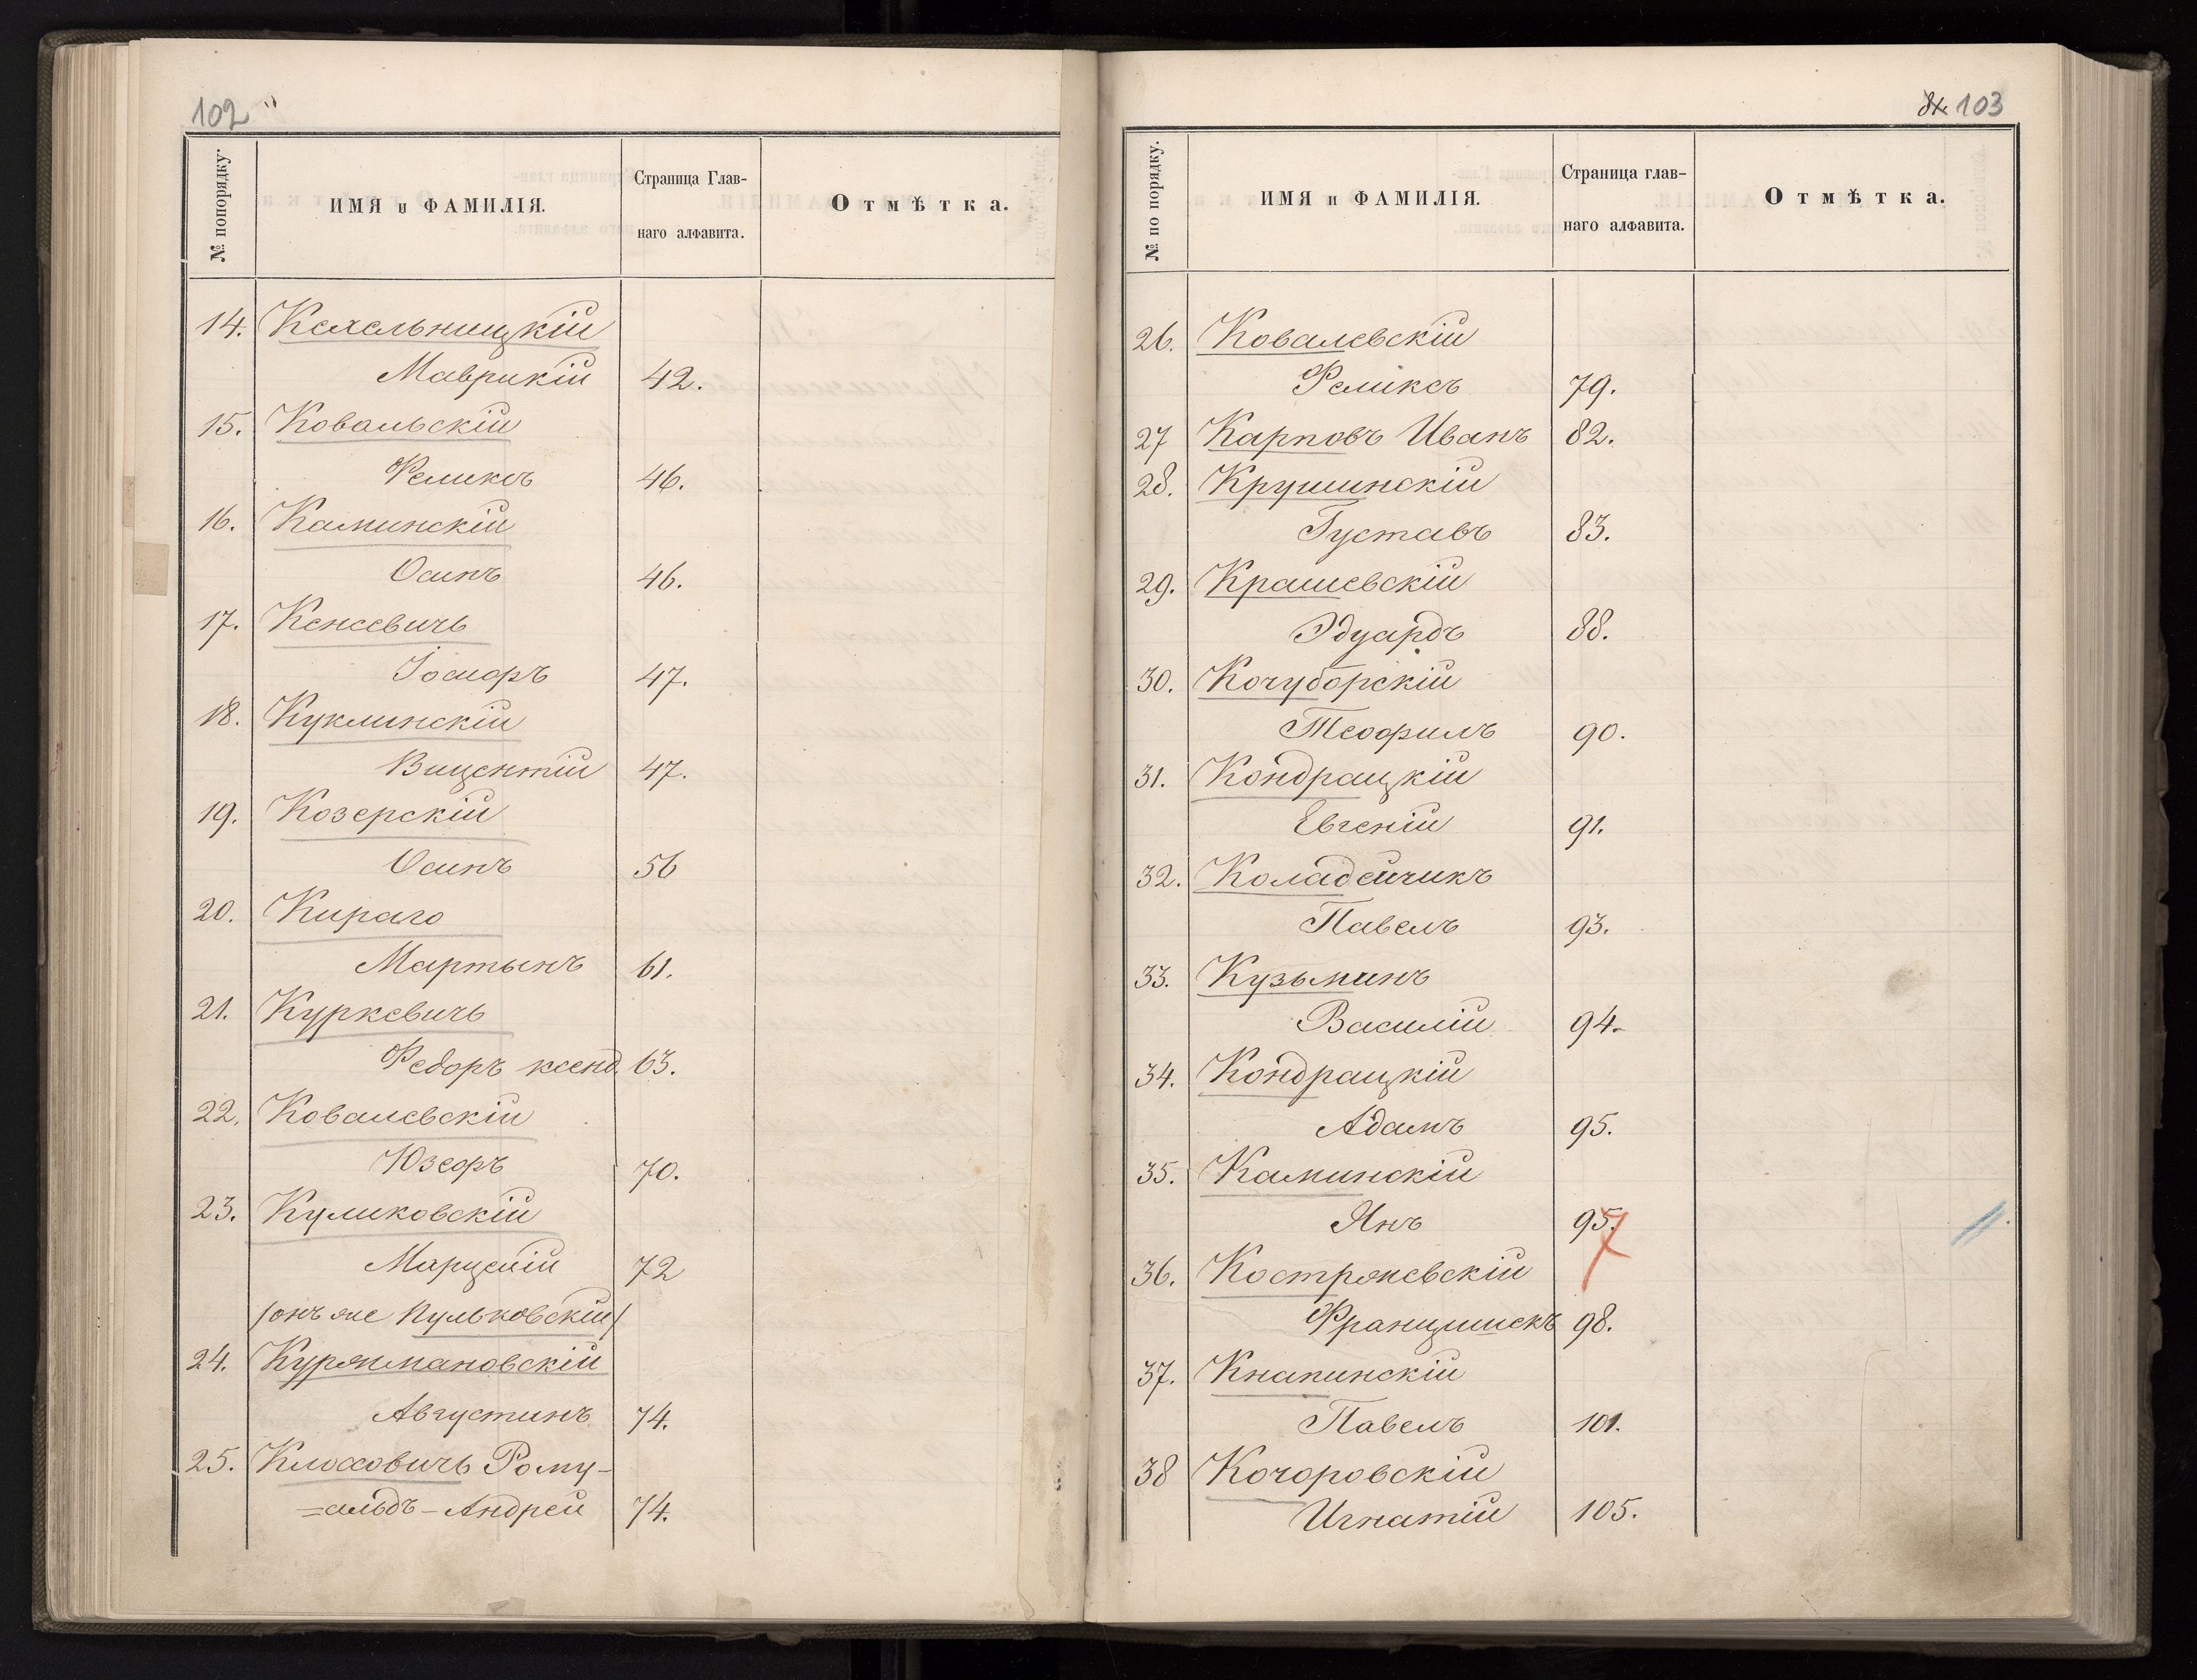 102
№ попорядку.
ИМЯ и ФАМИЛІЯ.
Страница Глав-
наго алфавита.
Отмѣтка.
14. Кехельницкій
Маврикій 42.
15. Ковальскій
Феликсъ 46.
16. Каминскій
Осипъ 46.
17. Кенсевичъ
Іосифъ 47.
18. Куклинскій
Вицентій 47.
19. Козерскій
Осипъ 56
20. Кираго
Мартынъ 61.
21. Куркевичъ
Федоръ ксенд. 63.
22. Ковалевскій
Юзефъ 70.
23. Куликовскій
Марцелій 72
/онъ же Пульковскій/
24. Куржмановскій
Августинъ 74.
25. Клоссовичъ Рому-
=альдъ-Андрей 74.
103
№ по порядку.
ИМЯ и ФАМИЛІЯ.
Страница глав-
наго алфавита.
Отмѣтка.
26. Ковалевскій
Феликсъ 79.
27 Карповъ Иванъ 82.
28. Крушинскій
Густавъ 83.
29. Крашевскій
Эдуардъ 88.
30. Кочуборскій
Теофилъ 90.
31. Кондрацкій
Евгеній 91.
32. Коладейчикъ
Павелъ 93.
33. Кузьминъ
Василій 94.
34. Кондрацкій
Адамъ 95.
35. Каминскій
Янъ 95.
36. Костржевскій
Францишекъ 98.
37. Кнапинскій
Павелъ 101.
38 Кочоровскій
Игнатій 105.